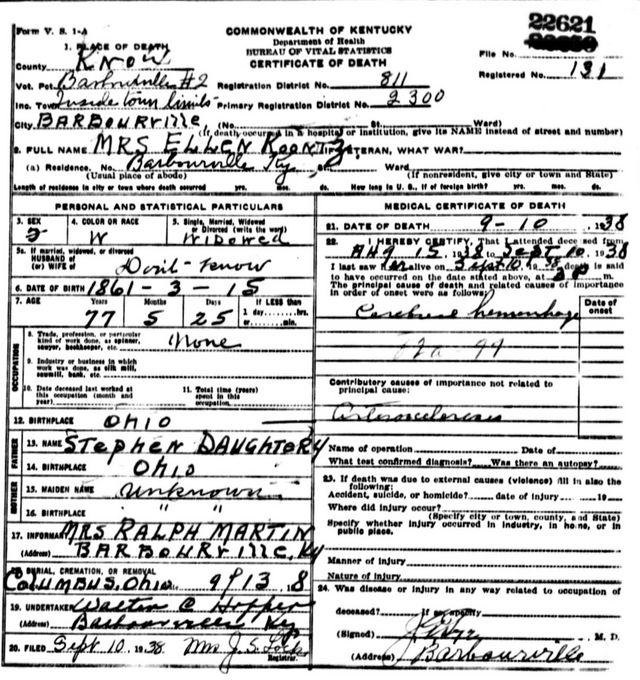 Form V. S. 1-A
COMMONWEALTH OF KENTUCKY
Department of Health
BUREAU OF VITAL STATISTICS
CERTIFICATE OF DEATH
22621
File No.
Registered No. 131
1. PLACE OF DEATH
County Knox
Vot. Pct. Barbourville #2 Registration District No. 811
Inc. Town Inside town limits Primary Registration District No. 2300
City BARBOURVILLE (No. St. Ward)
(If death occurred in a hospital or institution, give its NAME instead of street and number)
2. FULL NAME MRS ELLEN KOONTZ IF VETERAN, WHAT WAR?
(a) Residence. No. Barbourville Ky. St. Ward
(Usual place of abode) (If nonresident, give city or town and State)
Length of residence in city or town where death occurred yrs. mos. ds. How long in U. S., if of foreign birth? yrs. mos. ds.
PERSONAL AND STATISTICAL PARTICULARS
3. SEX 4. COLOR OR RACE W 5. Single, Married, Widowed or Divorced (write the word) Widowed
5a. If married, widowed, or divorced
HUSBAND of
(or) WIFE of Don't-Know
6. DATE OF BIRTH 1861-3-15
7. AGE Years 77 Months 5 Days 25 If LESS than 1 day ... hrs. or ... min.
OCCUPATION
8. Trade, profession, or particular kind of work done, as spinner, sawyer, bookkeeper, etc. None
9. Industry or business in which work was done, as silk mill, sawmill, bank, etc.
10. Date deceased last worked at this occupation (month and year)
11. Total time (years) spent in this occupation.
12. BIRTHPLACE OHIO
FATHER
13. NAME STEPHEN DAUGHTERY
14. BIRTHPLACE OHIO
MOTHER
15. MAIDEN NAME Unknown
16. BIRTHPLACE " "
17. INFORMANT MRS RALPH MARTIN
(Address) BARBOURVILLE, Ky
18. BURIAL, CREMATION, OR REMOVAL
COLUMBUS, Ohio 9/13 8
19. UNDERTAKER Walter C Hopper
(Address) Barbourville Ky
20. FILED Sept 10, 1938 Mrs. J. S. Lock
Registrar.
MEDICAL CERTIFICATE OF DEATH
21. DATE OF DEATH 9-10 1938
22. I HEREBY CERTIFY, That I attended deceased from
Aug 15, 1938 to Sept 10, 1938
I last saw h alive on Sept 10, 19 death is said
to have occurred on the date stated above, at m.
The principal cause of death and related causes of importance in order of onset were as follows:
Date of onset
Cerebral hemorrhage
Contributory causes of importance not related to principal cause:
Arteriosclerosis
Name of operation Date of
What test confirmed diagnosis? Was there an autopsy?
23. If death was due to external causes (violence) fill in also the following:
Accident, suicide, or homicide? date of injury 19
Where did injury occur?
(Specify city or town, county, and State)
Specify whether injury occurred in industry, in home, or in public place.
Manner of injury
Nature of injury
24. Was disease or injury in any way related to occupation of
deceased? If so, specify
(Signed) M. D.
(Address) Barbourville